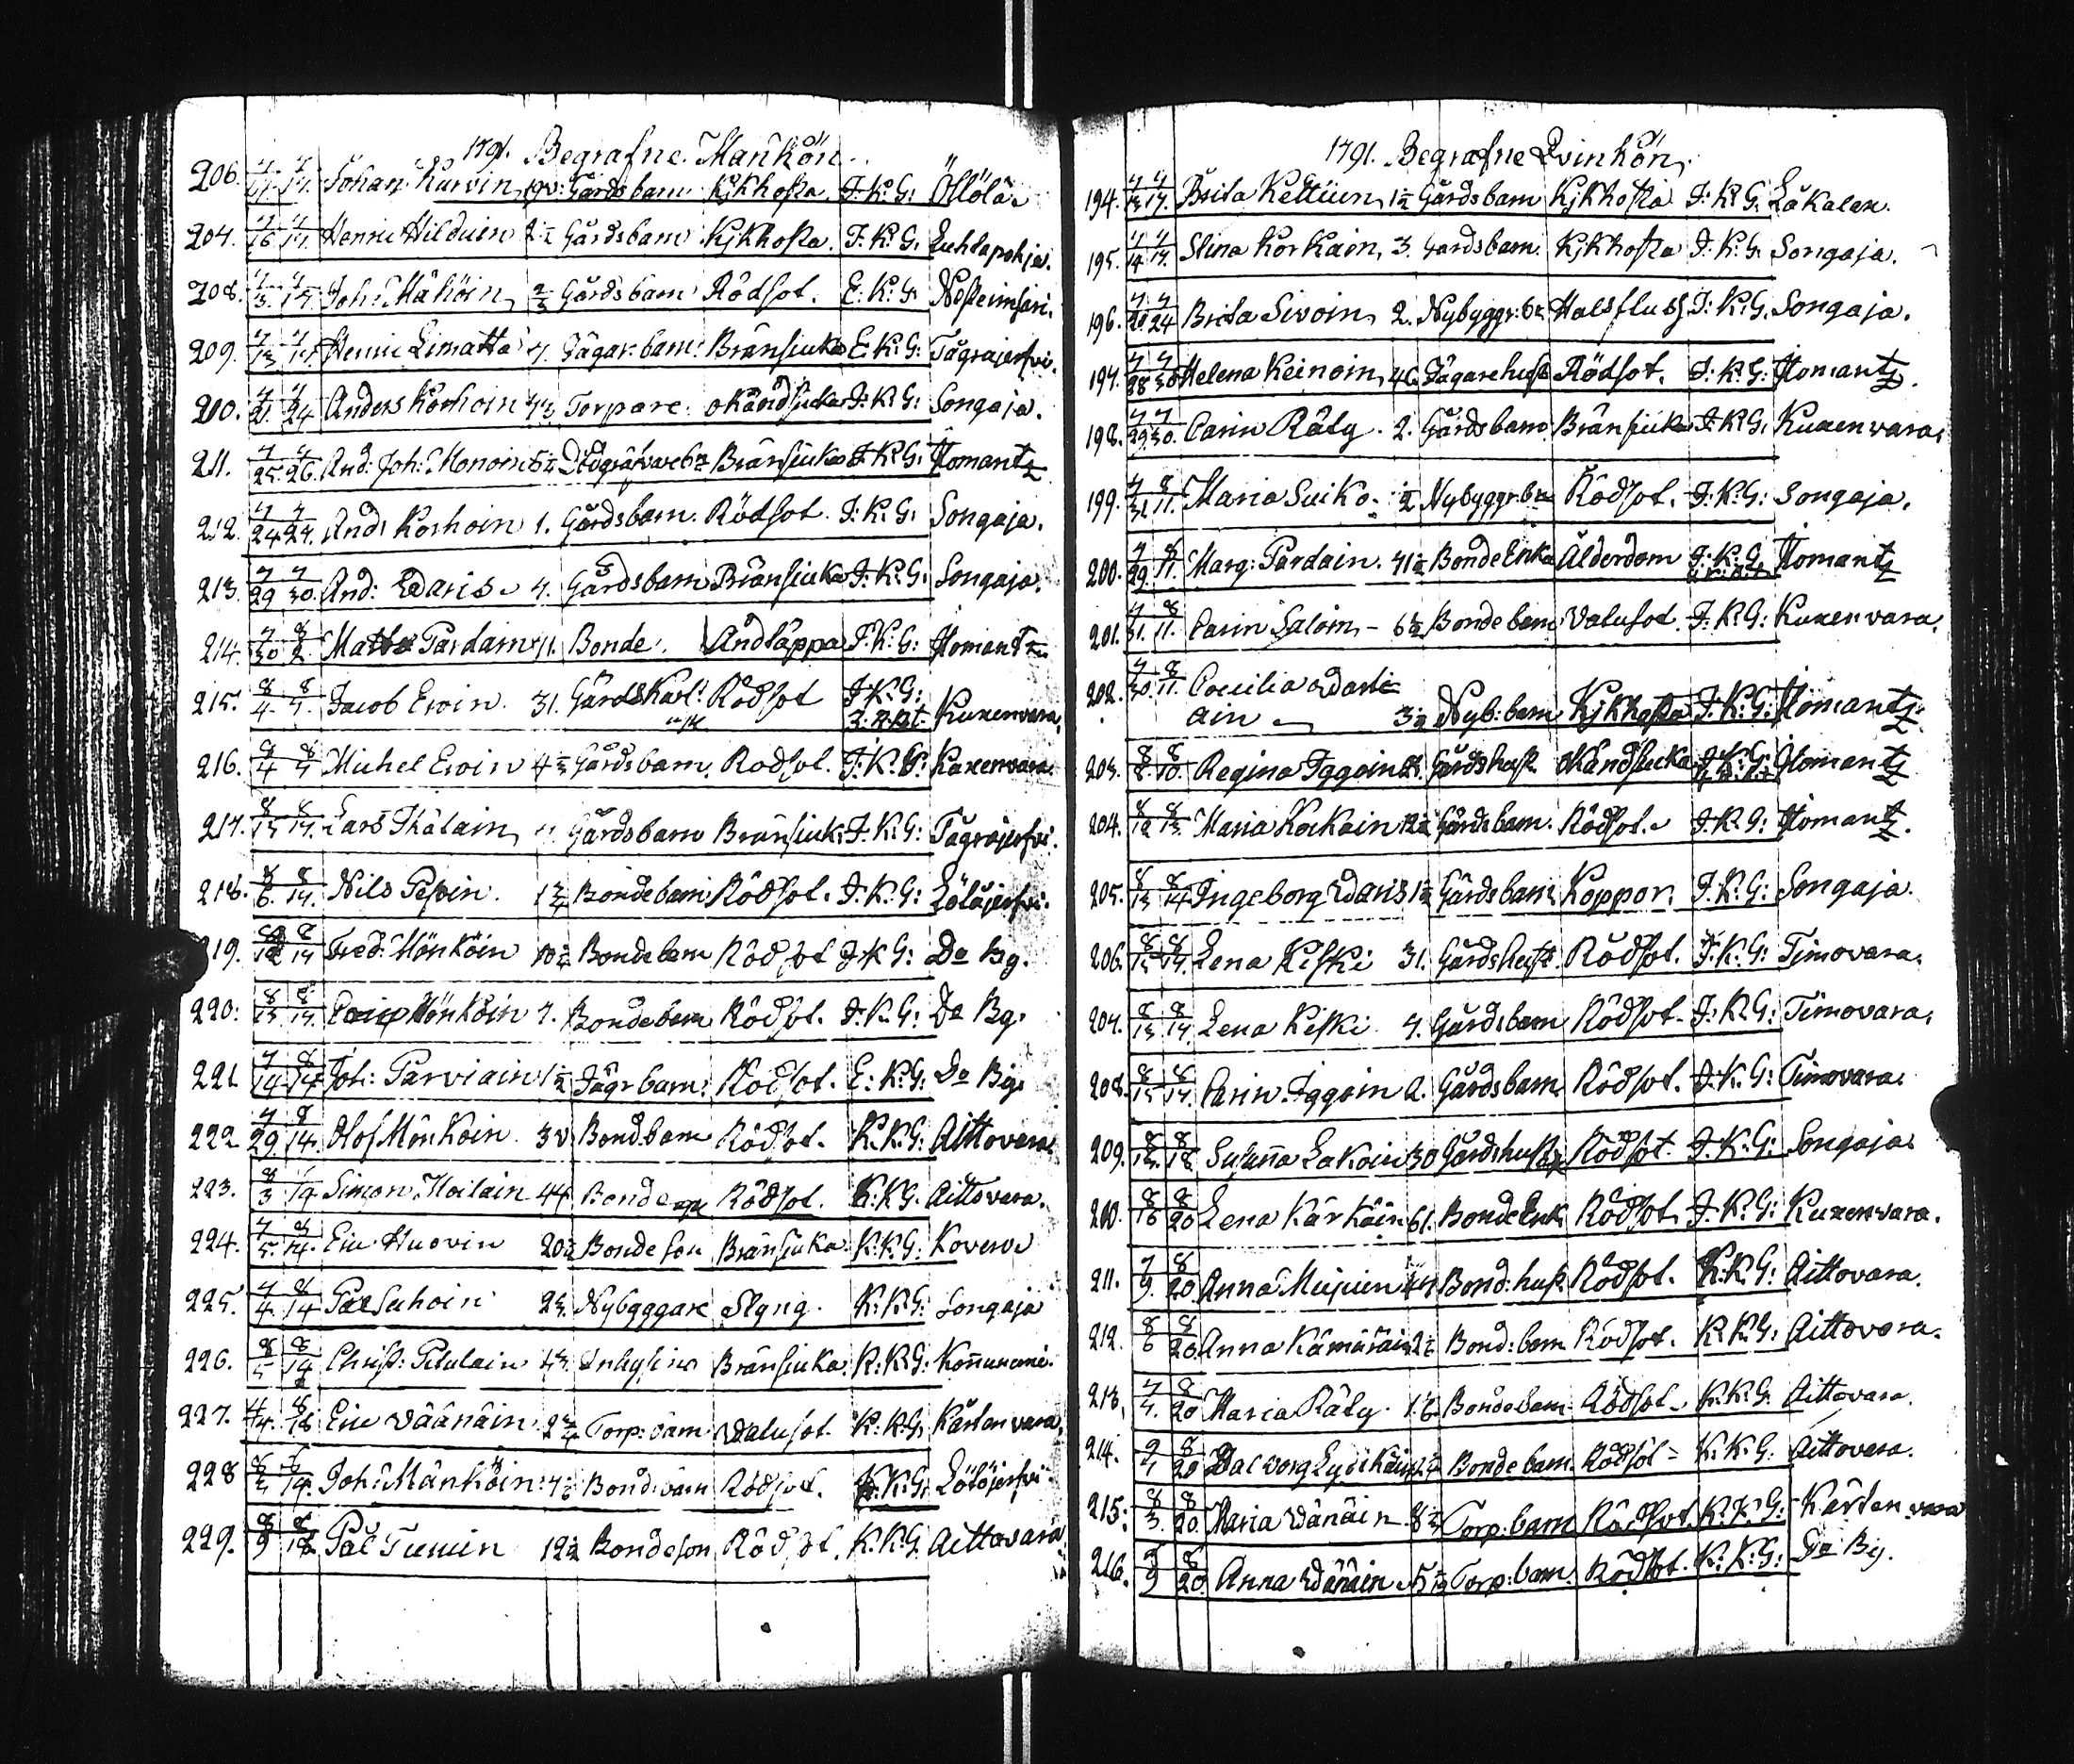 1791. Begrafne Mankön.
206. 7/17. 7/17. Johan Kurvin, Gårdsbarn Kjkhosta. I. K. G: Öllölä
207. 7/16 7/17. Henric Hilduin 2 1/2 Gårdsbarn Kjkhosta. I. K. G. Luhtapohja.
208. 7/3. 7/17. Joh: Mähöin, 2/3 Gårdsbarn Rödsot. E: K: G.
209. 7/13 7/17. Henric Limatta 7. Jägar. barn: Bränsiuka E. K. G: Tågrajerfvi.
210. 7/21. 7/24 Anders Korhoin Torpare. okändsiuka I. K. G: Songaja.
211. 7/25. 7/26. And: Joh: Monoin Dödgräfvarebn Bränsiuka I. K. G: Ilomantz
212. 7/24 7/27. And: Korhoin 1. Gårdsbarn. Rödsot. I. K. G. Songaja.
213. 7/29 7/30. And: Waris 7. Gårdsbarn Bränsiuka I. K. G: Songaja.
214. 7/30 8/2. Matts Pardain 71. Bonde. Andtäppa I. K. G: Ilomants
215. 8/4. 8/7. Jacob Ervin. 31. Gårdskarl: Rödsot I K. G: Kuxenvara,
216. 8/4 8/7 Michel Ervin 4 2/3 Gårdsbarn. Rödsot. I. K. G: Kuxenvara
217. 8/13 8/14. Lars Ihalain, Gårdsbarn Bränsiuk: I. K. G: Tågrajerfvi.
218. 8/6. 8/14. Nils Pesoin. 1 3/4 Bondebarn Rödsot. I. K. G: Lölöjerfvi.
219. 8/12 8/14 Fred: Mönköin Bondebarn Rödsot I K G: Do By.
220: 8/13. 8/14. Mönköin 7. Bondebarn Rödsot. I. K. G: Do By.
221 7/14 8/14 Joh: Parviain 1 1/2 Jägr barn. Rödsot. E: K. G: Do By.
222 7/29 8/14. Olof Mönköin. Bond. barn Rödsot. K. K. G: Aittovara
223. 8/3 8/14 Simon Moilain 44 Bonde Rödsot. K. K. G. Aittovara.
224. 7/5. 8/14. Eric Huovin 20 1/2 Bondeson Bränsiuka K. K. G: Kovero
225. 7/4. 8/14 Pål Suhoin Nybyggare Slgng. K. K. G: Songaja
226. 8/5 8/14 Christ: Inhyßing Bränsiuka. K. K. G:
227. 8/18 Eric Väänäin. 2 3/4 Torp: barn Walusot. K. K. G. Kärtenvara,
228 8/14. Joh: Mänköin: Bond. barn Rödsot. K. K. G. Lölöjerfvi.
229. 8/9 8/18 Pål Tiuuin 12 1/2 Bondeson Rödsot. K. K. G. Aittovara
1791. Begrafne Qvinkön.
194. 7/13 7/17. Brita Kettuin, 1 1/2 Gårdsbarn Kjkhosta I. K. G. Låkalax.
195. 7/14 7/17. Stina Korkain, 3. Gårdsbarn. Kjkhosta I. K: G. Songaja.
196. 7/20 7/24 Brita Sivoin, 2. Nybyggr: bn Halsfluss I: K: G. Songaja.
197. 7/28 7/30 Helena Keinoin, 46. Jägarehust Rödsot. I. K: G: Ilomantz.
198. 7/29 7/30. Carin Räty. 2. Gårdsbarn Bränsiuka I. K G. Kuxenvara,
199. 7/31 8/11. Maria Suiko. 1/2 Nybyggr. bn Rödsot. I. K: G: Songaja.
200. 7/29 8/11. Marg: Pardain. 71 1/2 Bonde Enka Ålderdom I. K. G. Ilomantz
201. 7/31. 8/11. Carin Saloin, 6 1/2 Bondebarn Valusot. I. K. G: Kuxenvara.
202. 7/30. 8/11. Cœcilia Warti-
ain 3 1/2 Nyb: barn Kjkhosta I. K: G: Ilomantz
203. 8/8 8/10. Regina Iggoin Gårdshust okändsiucka I K: G: Ilomantz
204. 8/12 8/13 Maria Korkain Gårdsbarn. Rödsot. I. K. G: Ilomantz.
205. 8/13 8/14 Ingeborg Waris 1 1/2 Gårdsbarn Koppor. I. K: G: Songaja.
206. 8/13 8/14. Lena Kiski 31. Gårdshust. Rödsot. I. K: G: Timovara.
207. 8/13 8/14 Lena Kiski 7. Gårdsbarn Rödsot. I. K. G: Timovara.
208. 8/13 8/14. Carin Iggoin 2. Gårdsbarn Rödsot. I. K. G: Timovara.
209. 8/13. 8/18 Susanna Lakoin 30 Gårdshust Rödsot. I. K: G: Songaja.
210. 8/16 8/20 Lena Kärkäin 61. Bonde Enk Rödsot. I. K: G: Kuxenvara.
211. 7/9. 8/20. Anna Muiuin 47 Bond: hust Rödsot. K: K: G: Aittovara.
212. 8/6 8/20. Anna Kämäräin Bond: barn Rödsot. K. K. G: Aittovara.
213. 7/4. 8/20 Maria Räty. Bondebarn Rödsot. K. K. G. Aittovara.
214. 8/20 Walborg Bondebarn. Rödsot K. K. G. Aittovara.
215: 8/3. 8/20. Maria Wänäin Torp: barn Rödsot. K. K. G: Kärtenvara
216. 8/9 8/20. Anna Wänäin Torp: barn. Rödsot. K. K: G: Do By.